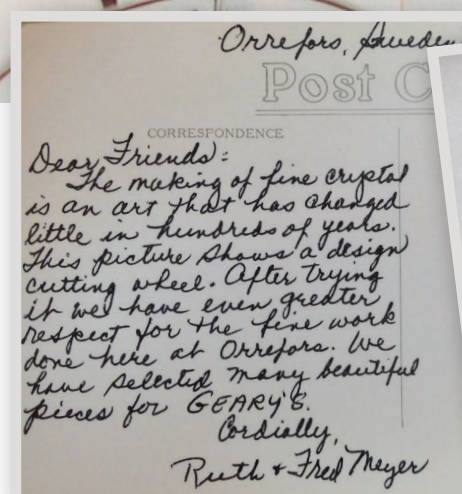 Orrefors, Sweden
Post C
CORRESPONDENCE
Dear Friends:
The making of fine crystal
is an art that has changed
little in hundreds of years.
This picture shows a design
cutting wheel. After trying
it we have even greater
respect for the fine work
done here at Orrefors. We
have selected many beautiful
pieces for GEARY'S.
Cordially,
Ruth & Fred Meyer